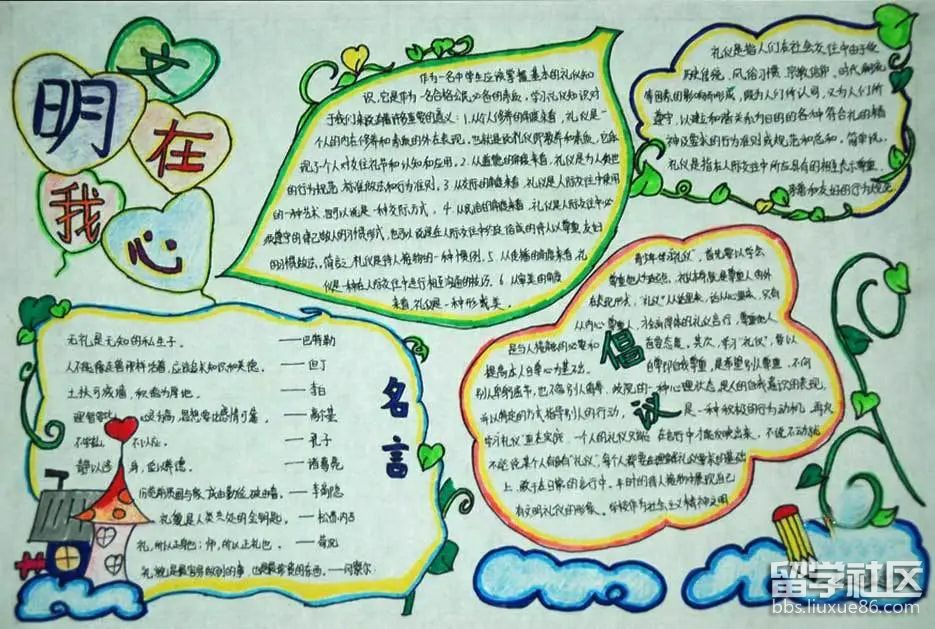 文明在我心
作为一名中学生应该掌握基本的礼仪知
识,它是作为一名合格公民必备的素质,学习礼仪知识对
于我们来说有着非常重要的意义:1.从个人修养的角度来看,礼仪是一
个人的内在修养和素质的外在表现,也就是说礼仪即教养和素质,它体
现了个人对交往礼节和认知和应用。2.从道德的角度来看,礼仪是为人处世
的行为规范 标准做法和行为准则。3.从交际的角度来看,礼仪是人际交往中使用
的一种艺术,也可以说是一种交际方式。4.从民俗的角度来看,礼仪是人际交往中必
须遵守的律己敬人的习惯形式,也可以说是在人际交往中约定俗成的待人以尊重友好
的习惯做法。简言之,礼仪是待人接物的一种惯例。5.从传播的角度来看,礼
仪是一种在人际交往中进行相互沟通的技巧。6.从审美的角度
来看,礼仪是一种形式美。
礼仪是指人们在社会交往中由于受
历史传统、风俗习惯、宗教信仰、时代潮流
等因素的影响而形成,既为人们所认同,又为人们所
遵守,以建立和谐关系为目的的各种符合礼的精
神及要求的行为准则或规范和总和。简单说,
礼仪是指在人际交往中所应具有的相互表示尊重、
亲善和友好的行为规范
名言
无礼是无知的私生子。 ——巴特勒
人不能像走兽那样活着,应该追求知识和美德。 ——但丁
土扶可成墙,积德为厚地。 ——李白
理智要比 心灵为高,思想要比感情可靠。 ——高尔基
不学礼, 不以立。 ——孔子
静以修 身,俭以养德。 ——诸葛亮
历览前贤国与家,成由勤俭,破由奢。 ——李商隐
礼貌是人类共处的金钥匙。 ——松苏内吉
礼,所以正身也;师,所以正礼也。 ——荀况
礼貌是最容易做到的事,也是最珍贵的东西。 ——冈察尔
倡议
青少年学习礼仪,首先要以学会
尊重他人为起点。礼仪本身就是尊重人的外
在表现形式,“礼仪”从话里来,话从心里来,只有
从内心尊重人,才会有得体的礼仪言行,尊重他人
是与人接触的必要和 首要态度。其次,学习“礼仪”,要以
提高本人自尊心为基础。 自尊即自我尊重,是希望被别人尊重,不向
别人卑躬屈节,也不容别人侮辱、歧视的一种心理状态,是人的自我意识的表现,
并以特定的方式指导别人的行动, 是一种积极的行为动机,再次
学习“礼仪”重在实践,一个人的礼仪只能 在言行中才能反映出来,不说不动就
不能说某个人有没有“礼仪”,每个人都要在理解礼仪要求的基础
上,敢于在日常的言行中,平时的待人接物中展现自己
有文明礼仪的形象。学校作为社会主义精神文明
留学社区
bbs.liuxue86.com